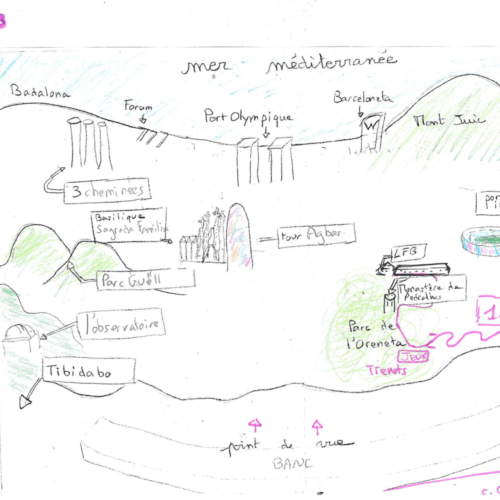 mer méditerranée
Badalona
Forum
Port Olympique
Barceloneta
W
Mont Juic
3 cheminées
Basilique
Sagrada Familia
tour Agbar
LFB
Monastère de
Pedralbes
Parc Guëll
l'observatoire
Parc de
l'Oreneta
JEUX
Trenets
Tibidabo
point de vue
BANC